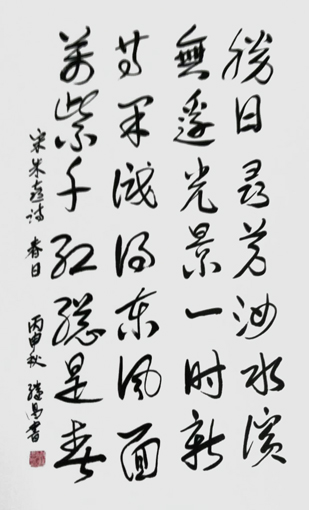 勝日尋芳泗水濱
無邊光景一时新
等闲識得东风面
萬紫千红總是春
宋朱熹诗 春日 丙申秋 書